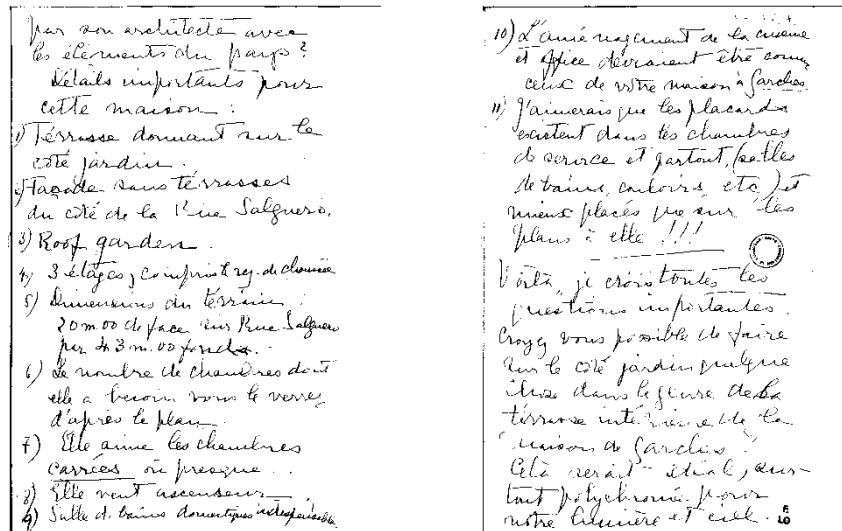 par son architecte avec
les éléments du pays?
Détails importants pour
cette maison :
1) Térrasse donnant sur le
côté jardin.
2) Façade sans térrasses
du côté de la Rue Salguero.
3) Roof garden.
4) 3 étages, comprint rez-de-chaussée
5) Dimensions du térrain :
20 m.00 de face sur Rue Salguero
par 43 m.00 fonds.
6) Le nombre de chambres dont
elle a besoin vous le verrez
d'après le plan.
7) Elle aime les chambres
carrées ou presque.
8) Elle veut ascenseur
9) Salle d. bains domestiques indispensable
10) L'aménagement de la cuisine
et office devraient être comme
ceux de votre maison à Garches.
11) J'aimerais que les placards
existent dans les chambres
de service et partout, (salles
de bains, couloirs, etc) et
mieux placés que sur les
plans à elle !!!
Voilà, je crois toutes les
questions importantes.
Croyez vous possible de faire
sur le côté jardin quelque
chose dans le genre de la
térrasse intérieure de la
"maison de Garches"?
Celà serait idéale, sur-
tout polychromie pour
notre lumière et ciel.